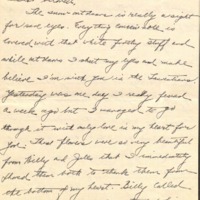 The snow at dawn is really a sight
for sore eyes. Everything
covered with that white stuff and
while at dawn I shut my eyes and make
believe I'm with you in the
Yesterday was one day I really feared
a week ago but I managed to go
through it with only love in my heart for
you. That flowers was so very beautiful
from Billy and that I immediately
them both to thank them from
the bottom of my heart. Billy called